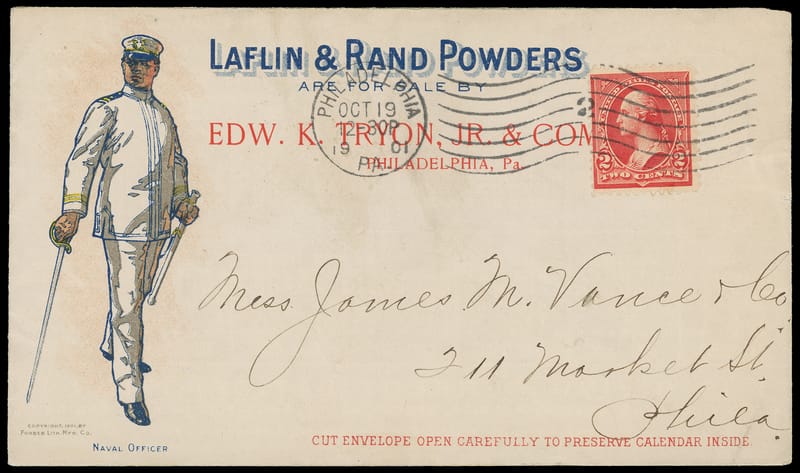 LAFLIN & RAND POWDERS
ARE FOR SALE BY
EDW. K. TRYON, JR. & COM
PHILADELPHIA, Pa.
PHILADELPHIA
OCT 19
12-30P
19 01
PA.
2
UNITED STATES POSTAGE
2 2
TWO CENTS
Mess. James M. Vance & Co
211 Market St.
Phila
COPYRIGHT, 1901, BY
FORBES LITH. MFG. CO.
NAVAL OFFICER
CUT ENVELOPE OPEN CAREFULLY TO PRESERVE CALENDAR INSIDE.